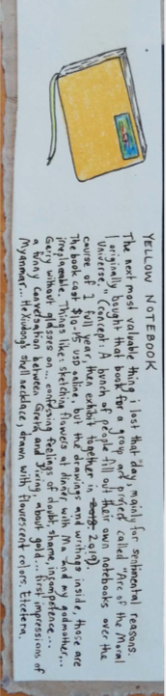 YELLOW NOTEBOOK
The next most valuable thing i lost that day, mainly for sentimental reasons.
I originally bought that book for a group art project called "Arc of the Moral
Universe." (Concept: A bunch of people fill out their own notebooks over the
course of 1 full year, then exhibit together in 2019).
The book cost $10-15 US online, but the drawings and writings inside, those are
irreplaceable. Things like: sketching flowers at dinner with Ma and my godmother...
Gary without glasses on... confessing feelings of doubt, shame, incompetence...
a funny conversation between Gerald and Jiving, about gold... first impressions of
Myanmar... shell necklace, drawn with flourescent colors. Etcetera.